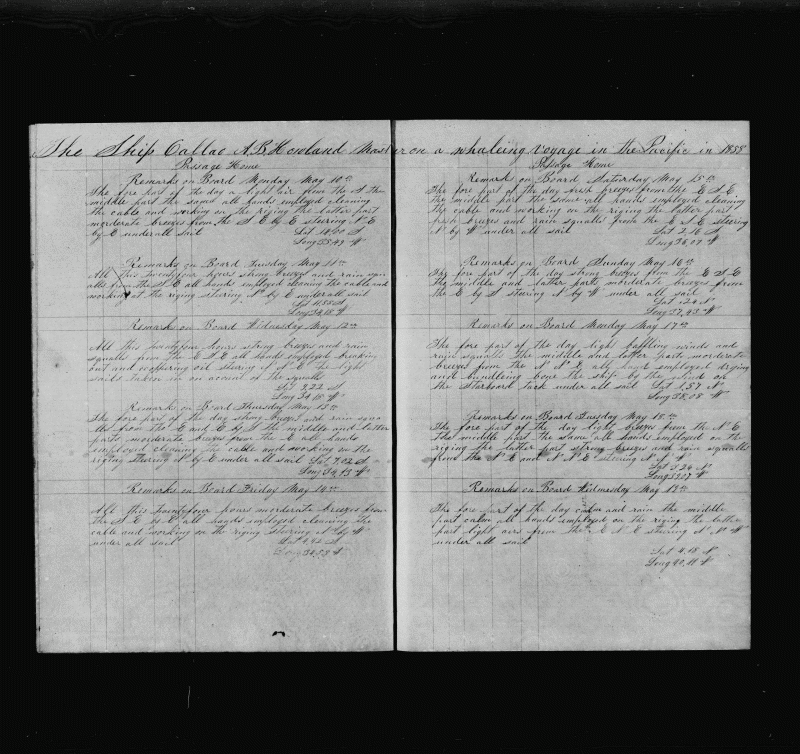 The Ship Callao A.B. Howland Master on a whaleing voyage in the Pacific in 1858
Passage Home
Remarks on Board Monday May 10th
The fore part of the day a light air from the S the
middle part the same all hands employed cleaning
the cable and working on the riging the latter part
morderate breezes from the S E by E steering N E
by E under all sail Lat 14,00 S
Long 35,49 W
Remarks on Board Tuesday May 11th
All this twentyfour hours strong breezes and rain squ
alls from the S E all hands employed cleaning the cable and
working at the riging steering N by E under all sail
Lat 11,55 S
Long 34,18 W
Remarks on Board Wednesday May 12th
All this twentyfour hours strong breezes and rain
squalls from the E S E all hands employed breaking
out and coopering oil steering N E the light
sails taken in on account of the squalls
Lat 9,22 S
Long 34,18 W
Remarks on Board Thursday May 13th
The fore part of the day strong breezes and rain squa
lls from the E and E by S the middle and latter
parts morderate breezes from the E all hands
employed cleaning the cable and working on the
riging steering N by E under all sail Lat 7,02 S
Long 34,13 W
Remarks on Board Friday May 14th
All this twentyfour hours morderate breezes from
the S E by E all hands employed cleaning the
cable and working on the riging steering N by W
under all sail Lat 4,42 S
Long 34,53 W
Passage Home
Remarks on Board Saturday May 15th
The fore part of the day brisk breezes from the E S E
the middle part the same all hands employed cleaning
the cable and working on the riging the latter part
fresh breezes and rain squalls from the E S E steering
N by W under all sail Lat 2,16 S
Long 36,07 W
Remarks on Board Sunday May 16th
The fore part of the day strong breezes from the E S E
the middle and latter parts morderate breezes from
the E by S steering N by W under all sail
Lat ,24 N
Long 37,43 W
Remarks on Board Monday May 17th
The fore part of the day light baffling winds and
rain squalls the middle and latter parts morderate
breezes from the N N E all hands employed drying
and bundleing bone the ship by the wind on
the starboard tack under all sail Lat 1,57 N
Long 38,08 W
Remarks on Board Tuesday May 18th
The fore part of the day light breezes from the N E
the middle part the same all hands employed on the
riging the latter part strong breezes and rain squalls
from the N E and N N E steering N W
Lat 3,24 N
Long 39,17 W
Remarks on Board Wednesday May 19th
The fore part of the day calm and rain the middle
part calm all hands employed on the riging the latter
part light airs from the E N E steering N N W
under all sail
Lat 4,18 N
Long 40,11 W